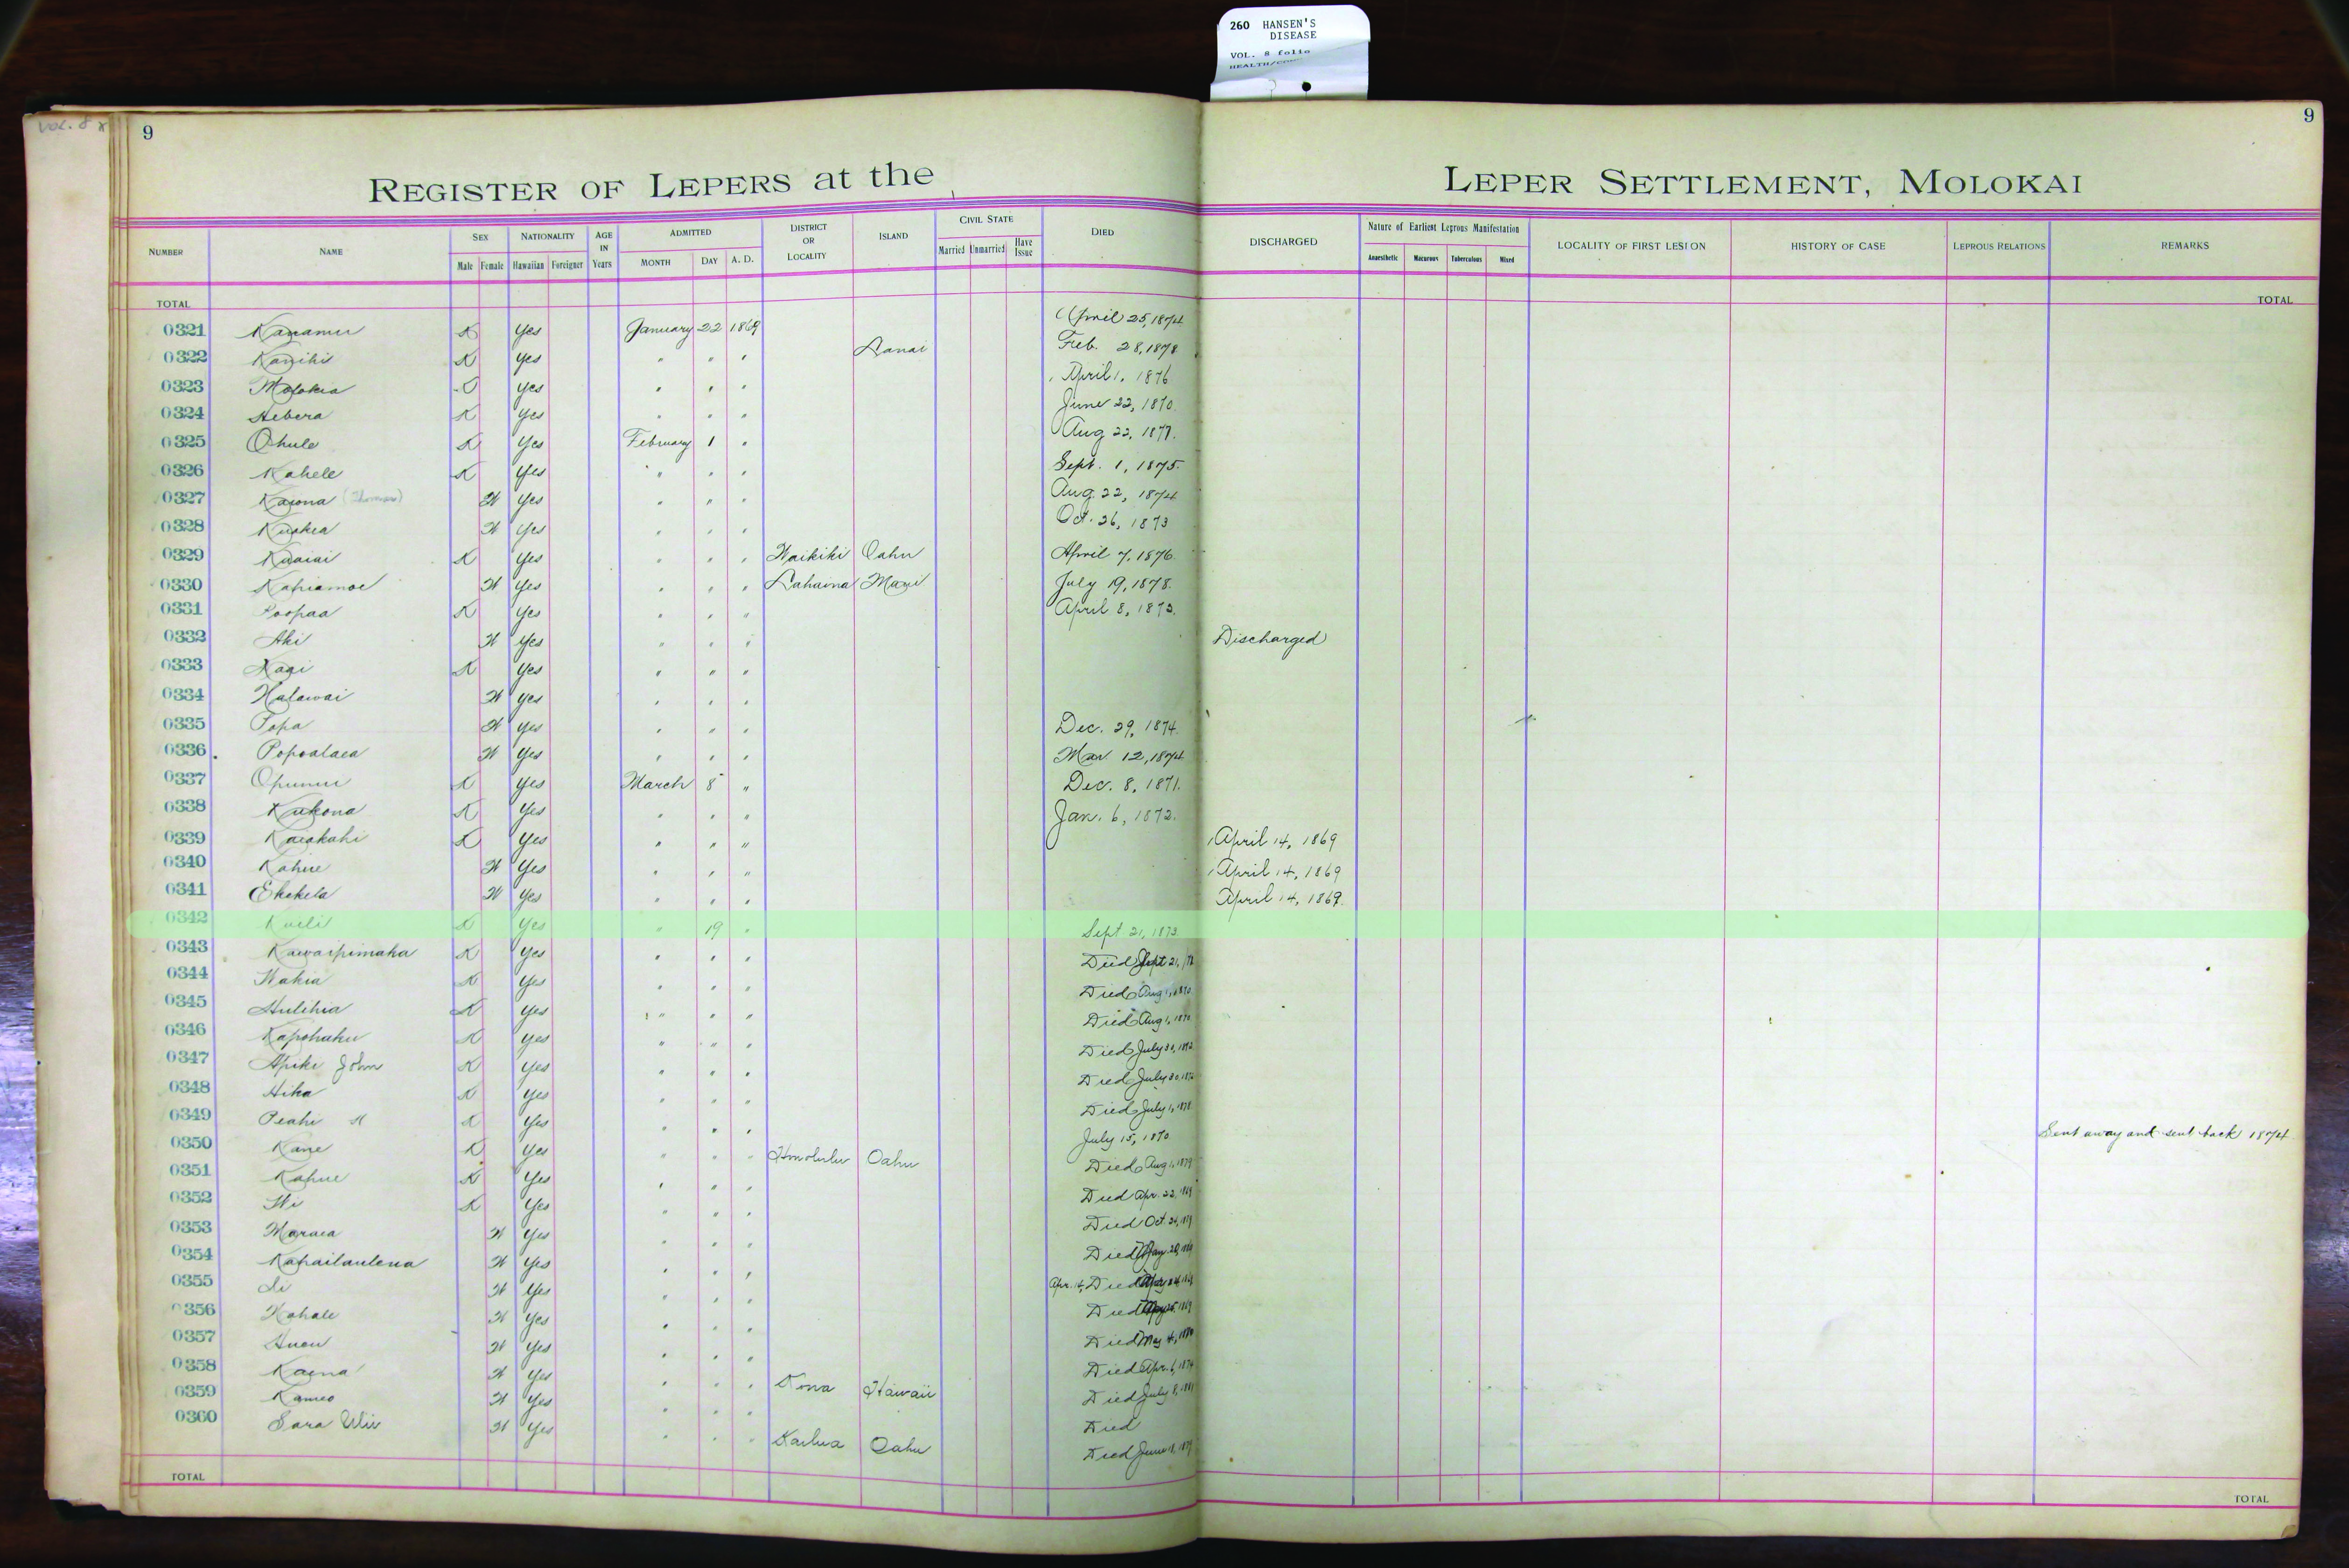 260 HANSEN'S
DISEASE
VOL. 8 folio
VOL. 8
9
9
REGISTER OF LEPERS at the LEPER SETTLEMENT, MOLOKAI
NUMBER NAME SEX NATIONALITY AGE IN Years ADMITTED DISTRICT OR LOCALITY ISLAND CIVIL STATE DIED DISCHARGED Nature of Earliest Leprous Manifestation LOCALITY OF FIRST LESION HISTORY OF CASE LEPROUS RELATIONS REMARKS
Male Female Hawaiian Foreigner MONTH DAY A. D. Married Unmarried Have Issue Anaesthetic Macurous Tuberculous Mixed
TOTAL TOTAL
0321 Kanamu K Yes January 22 1869 April 25, 1874
0322 Kanihi K Yes " " " Lanai Feb. 28, 1878
0323 Molokia Yes " " " April 1, 1876
0324 Hebera K Yes " " " June 22, 1870
0325 Ohule K Yes February 1 " Aug 22, 1877.
0326 Kahele K Yes " " " Sept. 1, 1875.
0327 Kaiona (Thomas) W Yes " " " Aug. 22, 1874
0328 W Yes " " " Oct. 26, 1873
0329 Kuaiai K Yes " " " Waikiki Oahu April 7, 1876
0330 Kapiamoe W Yes " " " Lahaina Maui July 19, 1878.
0331 Poopaa K Yes " " " April 8, 1873.
0332 Aki W Yes " " " Discharged
0333 Kaai K Yes " " "
0334 Halawai W Yes " " "
0335 Popa W Yes " " " Dec. 29, 1874.
0336 Popoalaea W Yes " " " Mar 12, 1874
0337 Opunui K Yes March 8 " Dec. 8, 1871.
0338 Kukona K Yes " " " Jan. 6, 1872.
0339 Kaiakahi K Yes " " " April 14, 1869
0340 Kahue W Yes " " " April 14, 1869
0341 Ekekela W Yes " " " April 14, 1869.
0342 Kaili K Yes " 19 " Sept 21, 1873
0343 Kawaipimaka K Yes " " " Died Sept 21,
0344 Wakia K Yes " " " Died Aug 1, 1870
0345 Hulihia K Yes " " " Died Aug 1, 1870
0346 Kapohaku K Yes " " " Died July 30, 1872
0347 Apiki John K Yes " " " Died July 30, 1872
0348 Hika K Yes " " " Died July 1, 1878
0349 Peahi K Yes " " " July 15, 1870. Sent away and sent back 1874
0350 Kane K Yes " " " Honolulu Oahu Died Aug 1, 1879
0351 Kahue K Yes " " " Died Apr. 22, 1869
0352 K Yes " " " Died Oct. 24,
0353 Maraea W Yes " " " Died
0354 Kahailaulena W Yes " " " Apr. 14, Died
0355 Li W Yes " " " Died
0356 Kahale W Yes " " " Died May 4,
0357 W Yes " " " Died Apr. 6, 1874
0358 Kaena W Yes " " " Kona Hawaii Died July 8, 1881
0359 Kameo W Yes " " " Died
0360 Sara W Yes " " " Kailua Oahu Died June
TOTAL TOTAL